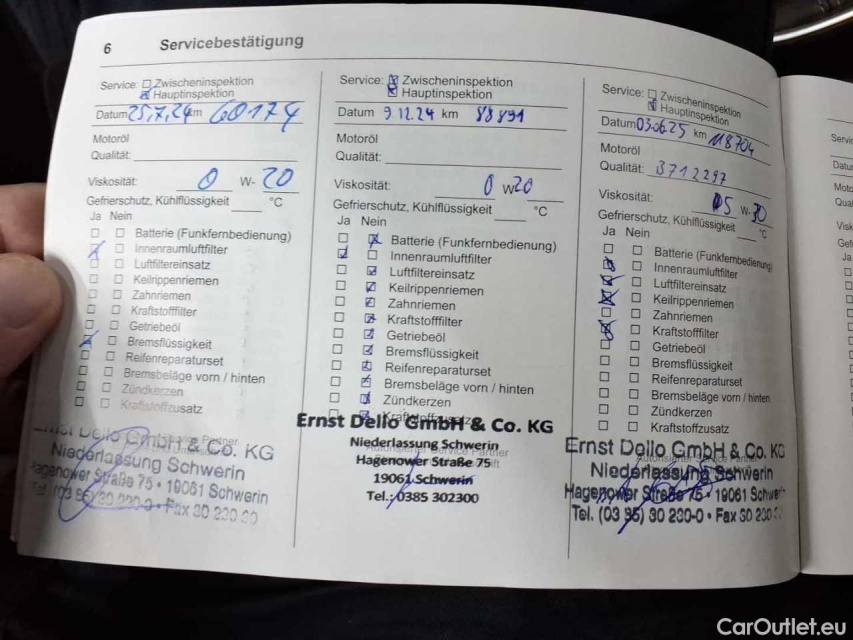 6 Servicebestätigung
Service: Zwischeninspektion
Hauptinspektion
Datum 25.7.24 km 60174
Motoröl
Qualität:
Viskosität: 0 W- 20
Gefrierschutz, Kühlflüssigkeit °C
Ja Nein
Batterie (Funkfernbedienung)
Innenraumluftfilter
Luftfiltereinsatz
Keilrippenriemen
Zahnriemen
Kraftstofffilter
Getriebeöl
Bremsflüssigkeit
Reifenreparaturset
Bremsbeläge vorn / hinten
Zündkerzen
Kraftstoffzusatz
Ernst Dello GmbH & Co. KG
Niederlassung Schwerin
Hagenower Straße 75 • 19061 Schwerin
Tel. (03 85) 30 230-0 • Fax 30 230
Service: Zwischeninspektion
Hauptinspektion
Datum 9.12.24 km 88891
Motoröl
Qualität:
Viskosität: 0 W20
Gefrierschutz, Kühlflüssigkeit °C
Ja Nein
Batterie (Funkfernbedienung)
Innenraumluftfilter
Luftfiltereinsatz
Keilrippenriemen
Zahnriemen
Kraftstofffilter
Getriebeöl
Bremsflüssigkeit
Reifenreparaturset
Bremsbeläge vorn / hinten
Zündkerzen
Kraftstoffzusatz
Ernst Dello GmbH & Co. KG
Niederlassung Schwerin
Hagenower Straße 75
19061 Schwerin
Tel.: 0385 302300
Service: Zwischeninspektion
Hauptinspektion
Datum 03.06.25 km 118704
Motoröl
Qualität: 3712297
Viskosität: 05 W- 30
Gefrierschutz, Kühlflüssigkeit °C
Ja Nein
Batterie (Funkfernbedienung)
Innenraumluftfilter
Luftfiltereinsatz
Keilrippenriemen
Zahnriemen
Kraftstofffilter
Getriebeöl
Bremsflüssigkeit
Reifenreparaturset
Bremsbeläge vorn / hinten
Zündkerzen
Kraftstoffzusatz
Ernst Dello GmbH & Co. KG
Niederlassung Schwerin
Hagenower Straße 75 • 19061 Schwerin
Tel. (03 85) 30 230-0 • Fax 30 230
CarOutlet.eu